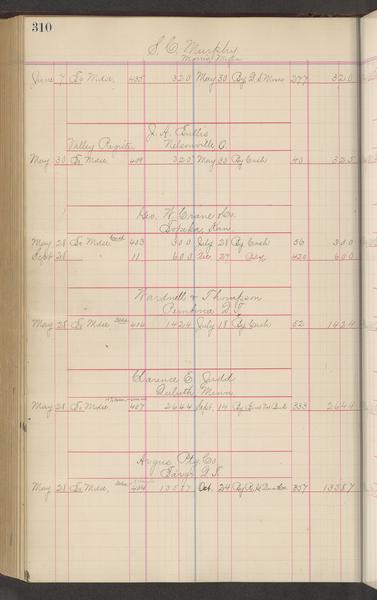 310
S. C. Murphy
Morris Minn
June 7 To Mdse. 435 320 May 30 By 277 320
J. A. Tullis
Valley Register Nelsonville, O.
May 30 To Mdse 409 325 May 30 By Cash 40 325
Geo. W. Crane & Co.
Topeka, Kan.
May 28 To Mdse 403 300 July 28 By Cash 56 300
Sept 21 11 600 Dec 27 420 600
Wardwell & Thompson
Pembina D.T.
May 28 To Mdse 406 1424 July 18 By Cash 52 1424
Clarence E. Judd
Duluth Minn
May 28 To Mdse 407 2644 Sept. 14 By 333 2644
Argus Ptg Co.
Fargo D.T.
May 28 To Mdse, 404 13587 Oct. 24 By 357 13587